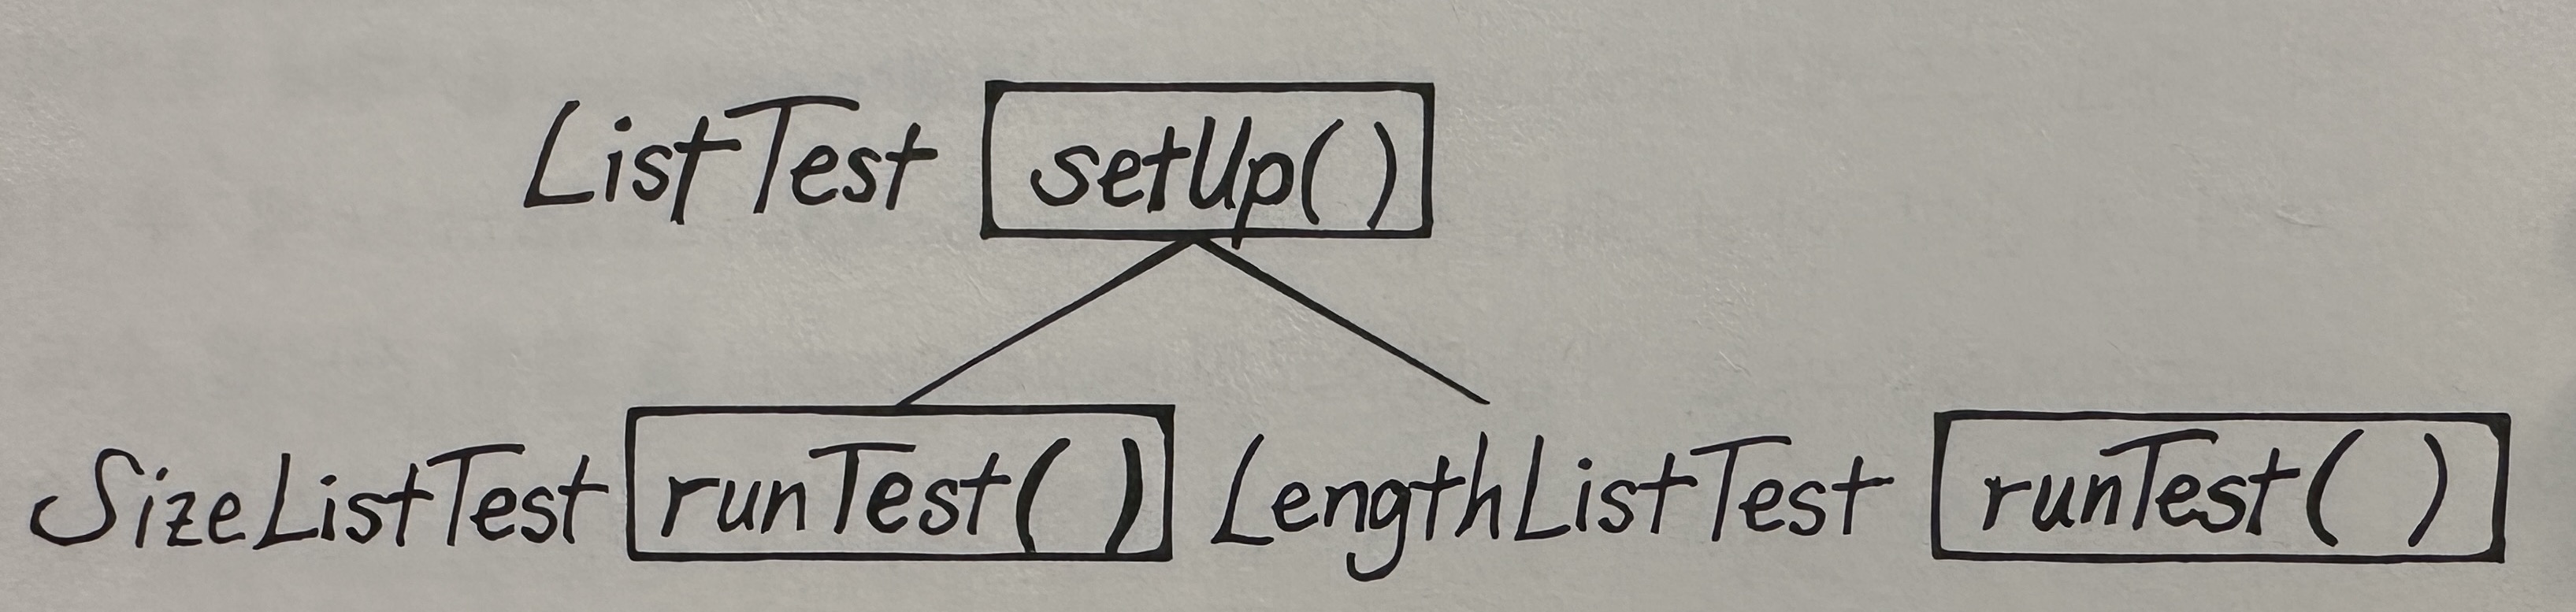 ListTest setUp()
SizeListTest runTest() LengthListTest runTest()